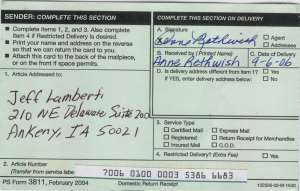 SENDER: COMPLETE THIS SECTION
■ Complete items 1, 2, and 3. Also complete
item 4 if Restricted Delivery is desired.
■ Print your name and address on the reverse
so that we can return the card to you.
■ Attach this card to the back of the mailpiece,
or on the front if space permits.
1. Article Addressed to:
Jeff Lamberti
210 NE Delaware Suite 200
Ankeny, IA 50021
2. Article Number
(Transfer from service label)
7006 0100 0003 5386 6683
PS Form 3811, February 2004
Domestic Return Receipt
COMPLETE THIS SECTION ON DELIVERY
A. Signature
Agent
Addressee
B. Received by (Printed Name)
C. Date of Delivery
Anne Rethwish
9-6-06
D. Is delivery address different from item 1?
Yes
If YES, enter delivery address below:
No
3. Service Type
Certified Mail
Express Mail
Registered
Return Receipt for Merchandise
Insured Mail
C.O.D.
4. Restricted Delivery? (Extra Fee)
Yes